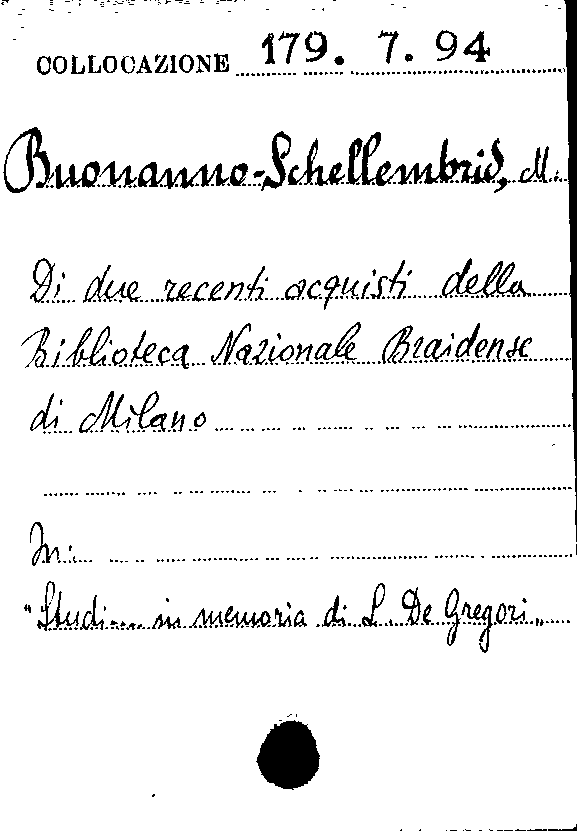 COLLOCAZIONE 179. 7. 94
Buonanno-Schellembrid, M.
Di due recenti acquisti della
Biblioteca Nazionale Braidense
di Milano
In:
"Studi.... in memoria di L. De Gregori"